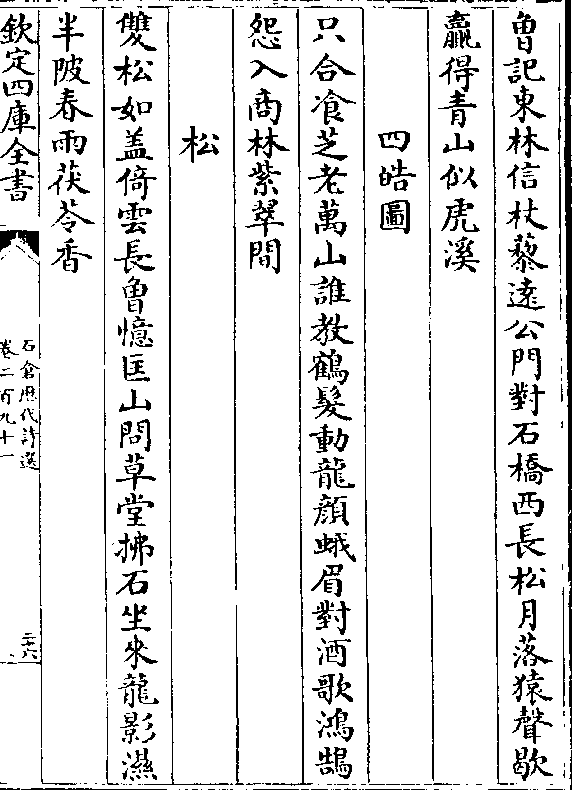 曾記東林信杖藜遠公門對石橋西長松月落猿聲歇
贏得青山似虎溪
四皓圖
只合飡芝老萬山誰教鶴髮動龍顔蛾眉對酒歌鴻鵠
怨入商林紫翠間
松
雙松如盖倚雲長曾憶匡山問草堂拂石坐來龍影濕
半陂春雨茯苓香
欽定四庫全書
石倉歷代詩選
卷二百九十一
二十六